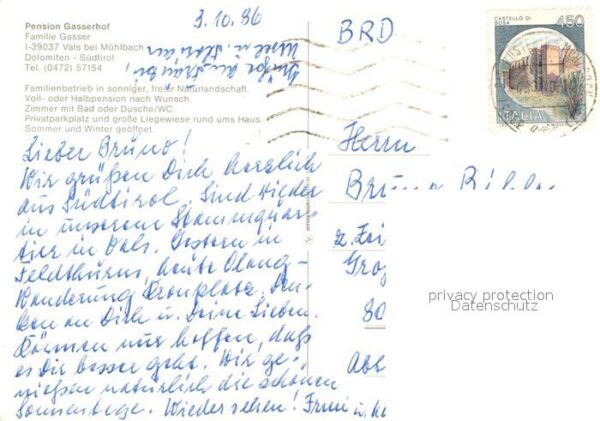 Pension Gasserhof
Familie Gasser
I-39037 Vals bei Mühlbach
Dolomiten - Südtirol
Tel. (0472) 57154
Familienbetrieb in sonniger, freier Naturlandschaft
Voll- oder Halbpension nach Wunsch
Zimmer mit Bad oder Dusche/WC.
Privatparkplatz und große Liegewiese rund ums Haus
Sommer und Winter geöffnet.
3.10.86
Lieber Bruno!
Wir grüßen Dich herzlich
aus Südtirol. Sind wieder
in unserem Stammquar-
tier in Vals. Gestern in
Feldthurns, heute Olang-
Wanderung Kronplatz. Den-
ken an Dich u. Deine Lieben.
Können nur hoffen, daß
es Dir besser geht. Wir ge-
nießen natürlich die schönen
Sonnentage. Wiedersehen!
BRD
Herrn
CASTELLO DI
ROSA
450
ITALIA
privacy protection
Datenschutz